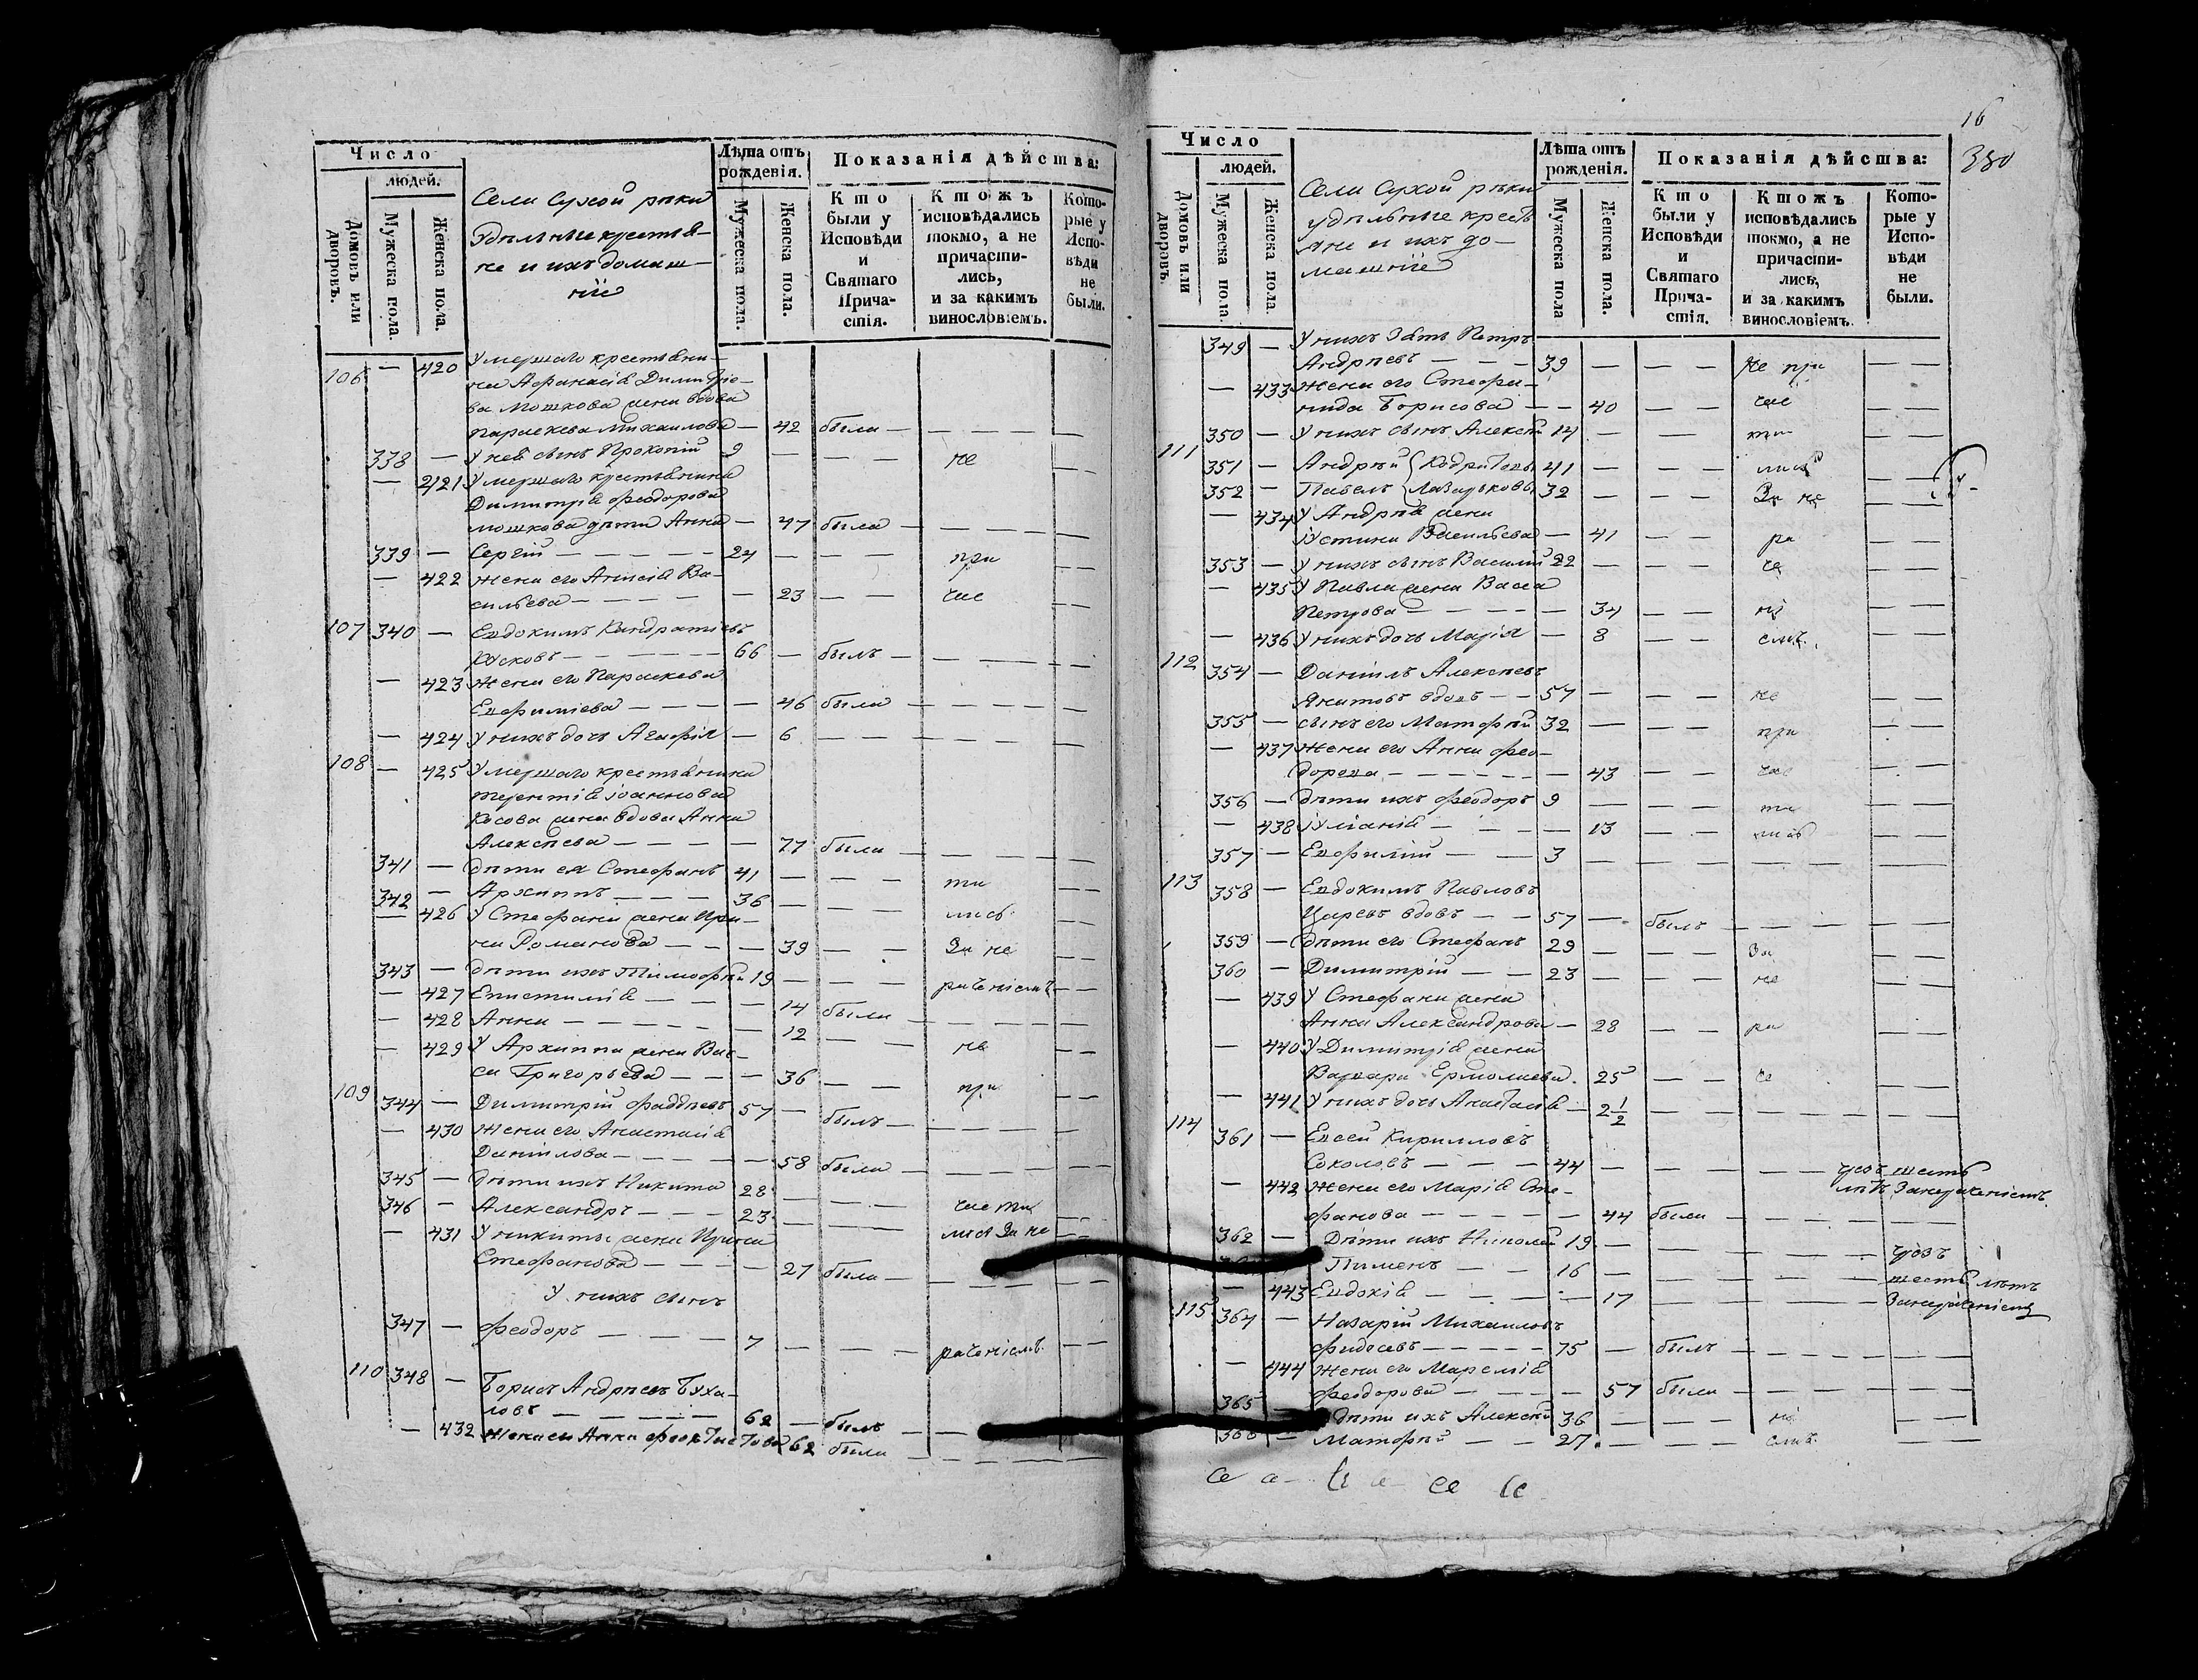 Число
людей.
Домовъ или дворовъ.
Мужеска пола.
Женска пола.
Села Сухой рѣки
Удѣлные крестья-
не и ихъ домаш-
ніе
Лѣта отъ рожденія.
Мужеска пола.
Женска пола.
Показанія дѣйства:
Кто были у Исповѣди и Святаго Причастія.
Ктожъ исповѣдались токмо, а не причастились, и за какимъ винословіемъ.
Которые у Исповѣди не были.
106 — 420 Умершаго крестьяни-
на Афанасія Димитріе-
ва Мошкова жена вдова
Параскева Михаилова — 42 была — — — — —
338 — У нея сынъ Прокопій 9 — — — не — —
— 421 Умершаго крестьянина
Димитрія Феодорова
Мошкова дѣти Анна — 47 была — — — —
339 — Сергій — — — — — 24 — — — при — —
— 422 Жена его Анисія Ва-
сильева — — — — — — 23 — — час — —
107 340 — Евдокимъ Кандратіевъ
Кусковъ — — — — — 66 — былъ — — — — —
— 423 Жена его Параскева
Евфиміева — — — — — 46 была — — — — —
— 424 У нихъ дочь Агафія — 6 — — — — — — —
108 — 425 Умершаго крестьянина
Терентія Іоаннова
Косова жена вдова Анна
Алексѣева — — — — — 77 была — — — — —
341 — Дѣти ея Стефанъ 41 — — — ти — —
342 — Архиппъ — — — 36 — — — лись — —
— 426 У Стефана жена Ири-
на Романова — — — — 39 — — За не — —
343 — Дѣти ихъ Тимофѣй 19 — — — раченіемъ — —
— 427 Епистимія — — — — 14 была — — — —
— 428 Анна — — — — — — 12 — — — — —
— 429 У Архиппа жена Вас-
са Григорьева — — — — 36 — — не при
109 344 — Димитрій Фаддѣевъ 57 — былъ — — — —
— 430 Жена его Анастасія
Даніилова — — — — — 58 была — — — — —
345 — Дѣти ихъ Никита 28 — — —
346 — Александръ — — — 23 — — — часты — —
— 431 У Никиты жена Ирина лися За не — —
Стефанова — — — — 27 была — — — — —
У нихъ сынъ
347 — Феодоръ — — — 7 — — — раченіемъ — —
110 348 — Борисъ Андрѣевъ Буха-
ловъ — — — — — 62 — былъ — —
— 432 Жена ег Анна Феоктистова 62 была — — — — —
16
380
Число
людей.
Домовъ или дворовъ.
Мужеска пола.
Женска пола.
Села Сухой рѣки
удѣльные кресть
яне и ихъ до-
машніе
Лѣта отъ рожденія.
Мужеска пола
Женска пола.
Показанія дѣйства:
Кто были у Исповѣди и Святаго Причастія.
Ктожъ исповѣдались токмо, а не причастились, и за какимъ винословіемъ.
Которые у Исповѣди не были.
349 — У нихъ Зять Петръ
Андрѣевъ — — — 39 — — — Не при — —
— 433 Жена его Стефа-
нида Борисова — — 40 — — час — —
350 — У нихъ сынъ Алексѣй 14 — — — ти
111 351 — Андрѣй 41 — — — лись — —
352 — Павелъ Лазарьковы 32 — — — За не — —
— 434 У Андрѣя жена
Устина Васильева — 41 — — ра — —
353 — У нихъ сынъ Василій 22 — — — че — —
— 435 У Павла жена Васса
Петрова — — — — — 34 — — ні — —
— 436 У нихъ дочь Марія — 8 — — емъ. — —
112 354 — Даніилъ Алексѣевъ
вдовъ — — 57 — — — не — —
355 — Сынъ его Матофѣй 32 — — — при — —
— 437 Жена его Анна Фео-
дорова — — — — — — 43 — — час — —
356 — Дѣти ихъ Феодоръ 9 — — — ти — —
— 438 Уліанія — — — — 13 — — лись — —
357 — Евфимій — — 3 — — — — — —
113 358 — Евдокимъ Павловъ
Царевъ вдовъ — — 57 — былъ — — — — —
359 — Дѣти его Стефанъ 29 — — — За — —
360 — Димитрій — — 23 — — — не — —
— 439 У Стефана жена
Анна Александрова — 28 — — ра — —
— 440 У Димитрія жена
Варвара Ермолаева. 25 — — че — —
— 441 У нихъ дочь Анастасія — 2 1/2 — — — — — —
114 361 — Евсей Кирилловъ
Соколовъ — — — 44 — — — — — чрезъ шесть
— 442 Жена его Марія Сте- лѣтъ Занераченіемъ.
фанова — — — — — 44 была — — — — —
362 — Дѣти ихъ Николай 19 — — — — — чрезъ
Пименъ — — 16 — — — — — шесть лѣтъ
— 443 Евдокія — — — — 17 — — — — Занераченіемъ
115 364 — Назарій Михаиловъ
Фидосевъ — — — — 75 — былъ — — — — —
— 444 Жена его Маремія
Феодорова — — — — 57 была — — — — —
365 — Дѣти ихъ Алексѣй 36 — — — ні — —
366 — Матофѣй — — 27 — — — емъ. — —